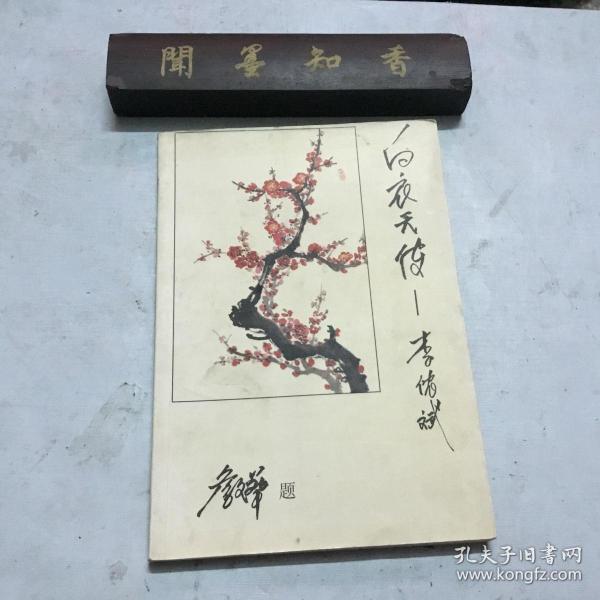 聞墨知香
白衣天使—李倩斌
题
孔夫子旧書网
www.kongfz.com